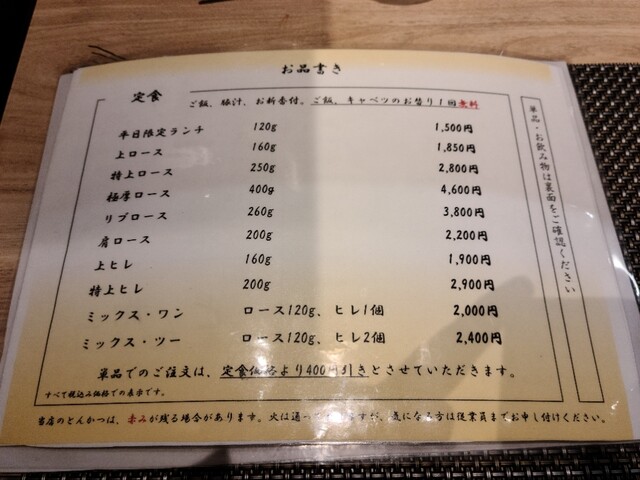 お品書き
定食
ご飯、豚汁、お新香付。ご飯、キャベツのお替り1回無料
平日限定ランチ 120g 1,500円
上ロース 160g 1,850円
特上ロース 250g 2,800円
極厚ロース 400g 4,600円
リブロース 260g 3,800円
肩ロース 200g 2,200円
上ヒレ 160g 1,900円
特上ヒレ 200g 2,900円
ミックス・ワン ロース120g、ヒレ1個 2,000円
ミックス・ツー ロース120g、ヒレ2個 2,400円
単品でのご注文は、定食価格より400円引きとさせていただきます。
すべて税込み価格での表示です。
当店のとんかつは、赤みが残る場合があります。火は通っ が、気になる方は従業員までお申し付けください。
単品・お飲み物は裏面をご確認ください